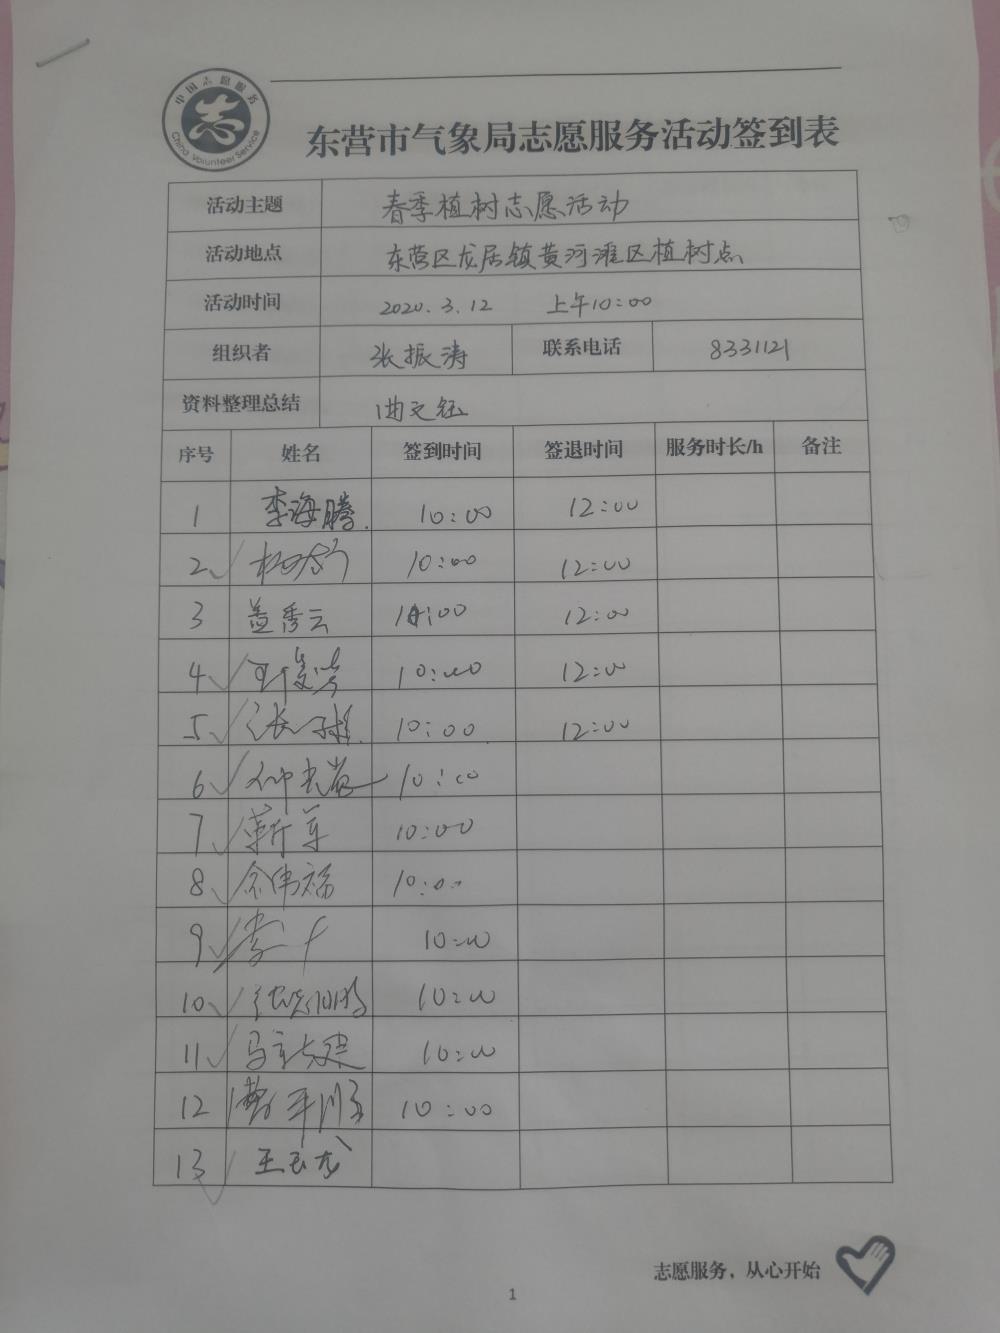 中国志愿服务
China Volunteer Service
东营市气象局志愿服务活动签到表
活动主题 春季植树志愿活动
活动地点 东营区龙居镇黄河滩区植树点
活动时间 2020.3.12 上午10:00
组织者 张振涛 联系电话 8331121
资料整理总结 曲文钰
序号 姓名 签到时间 签退时间 服务时长/h 备注
1 李海腾 10:00 12:00
2 10:00 12:00
3 盖秀云 10:00 12:00
4 10:00 12:00
5 10:00 12:00
6 10:00
7 靳军 10:00
8 余伟福 10:00
9 10:00
10 10:00
11 10:00
12 10:00
13 王玉龙
志愿服务，从心开始
1